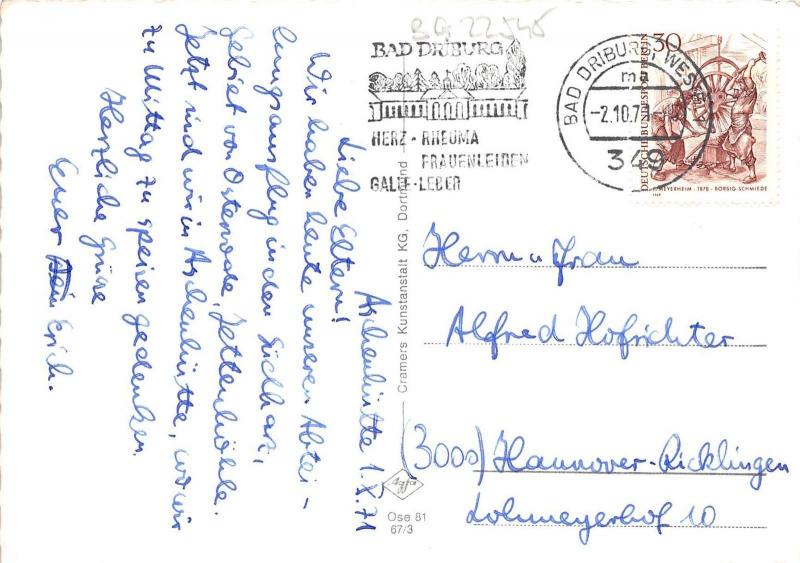 BG 22545
BAD DRIBURG
HERZ - RHEUMA
FRAUENLEIDEN
GALLE - LEBER
BAD DRIBURG, WESTF
m
-2.10.7
349
30
DEUTSCHE BUNDESPOST BERLIN
P. MEYERHEIM · 1878 · BORSIG-SCHMIEDE
Aschenhütte 1.X.71
Liebe Eltern!
Wir haben heute unseren Abtei-
lungsausflug in den Südharz,
Gebiet von Osterode, Jettenhöhle.
Jetzt sind wir in Aschenhütte, wo wir
zu Mittag zu speisen gedenken.
Herzliche Grüsse
Euer Erich.
Cramers Kunstanstalt KG, Dortmund
Agfa
Ose 81
67/3
Herrn u Frau
Alfred Hofrichter
(3000) Hannover-Ricklingen
Lohmeyerhof 10